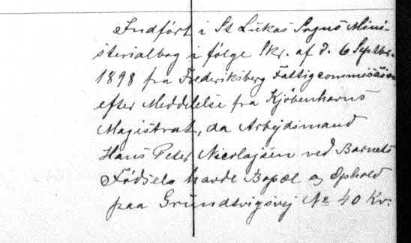 Indført i St Lukas Sogns Mini-
sterialbog i følge Skr. af D. 6 Septbr.
1898 fra Frederiksberg Fattigcommission
efter Meddelelse fra Kjøbenhavns
Magistrat, da Arbejdsmand
Hans Peter Nicolajsen ved Barnets
Fødsel havde Bopæl og Ophold
paa Grundtvigsvej No 40 Kv.